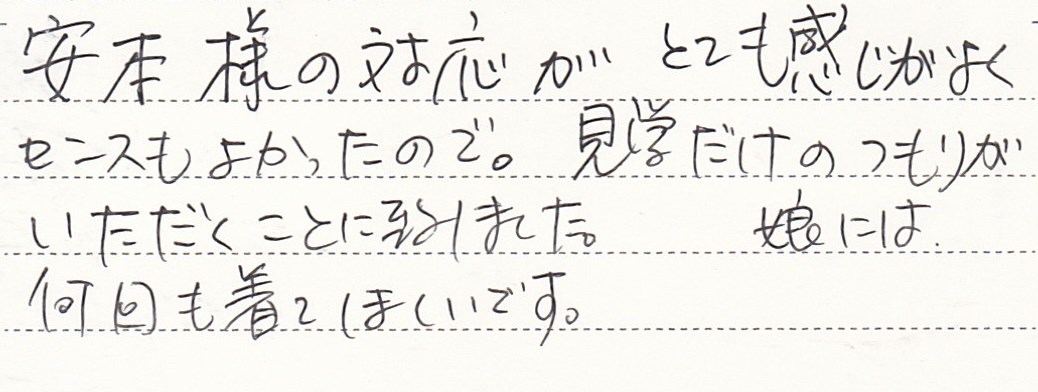 安本様の対応が とても感じがよく
センスもよかったので。見学だけのつもりが
いただくことに致しました。 娘には、
何回も着てほしいです。